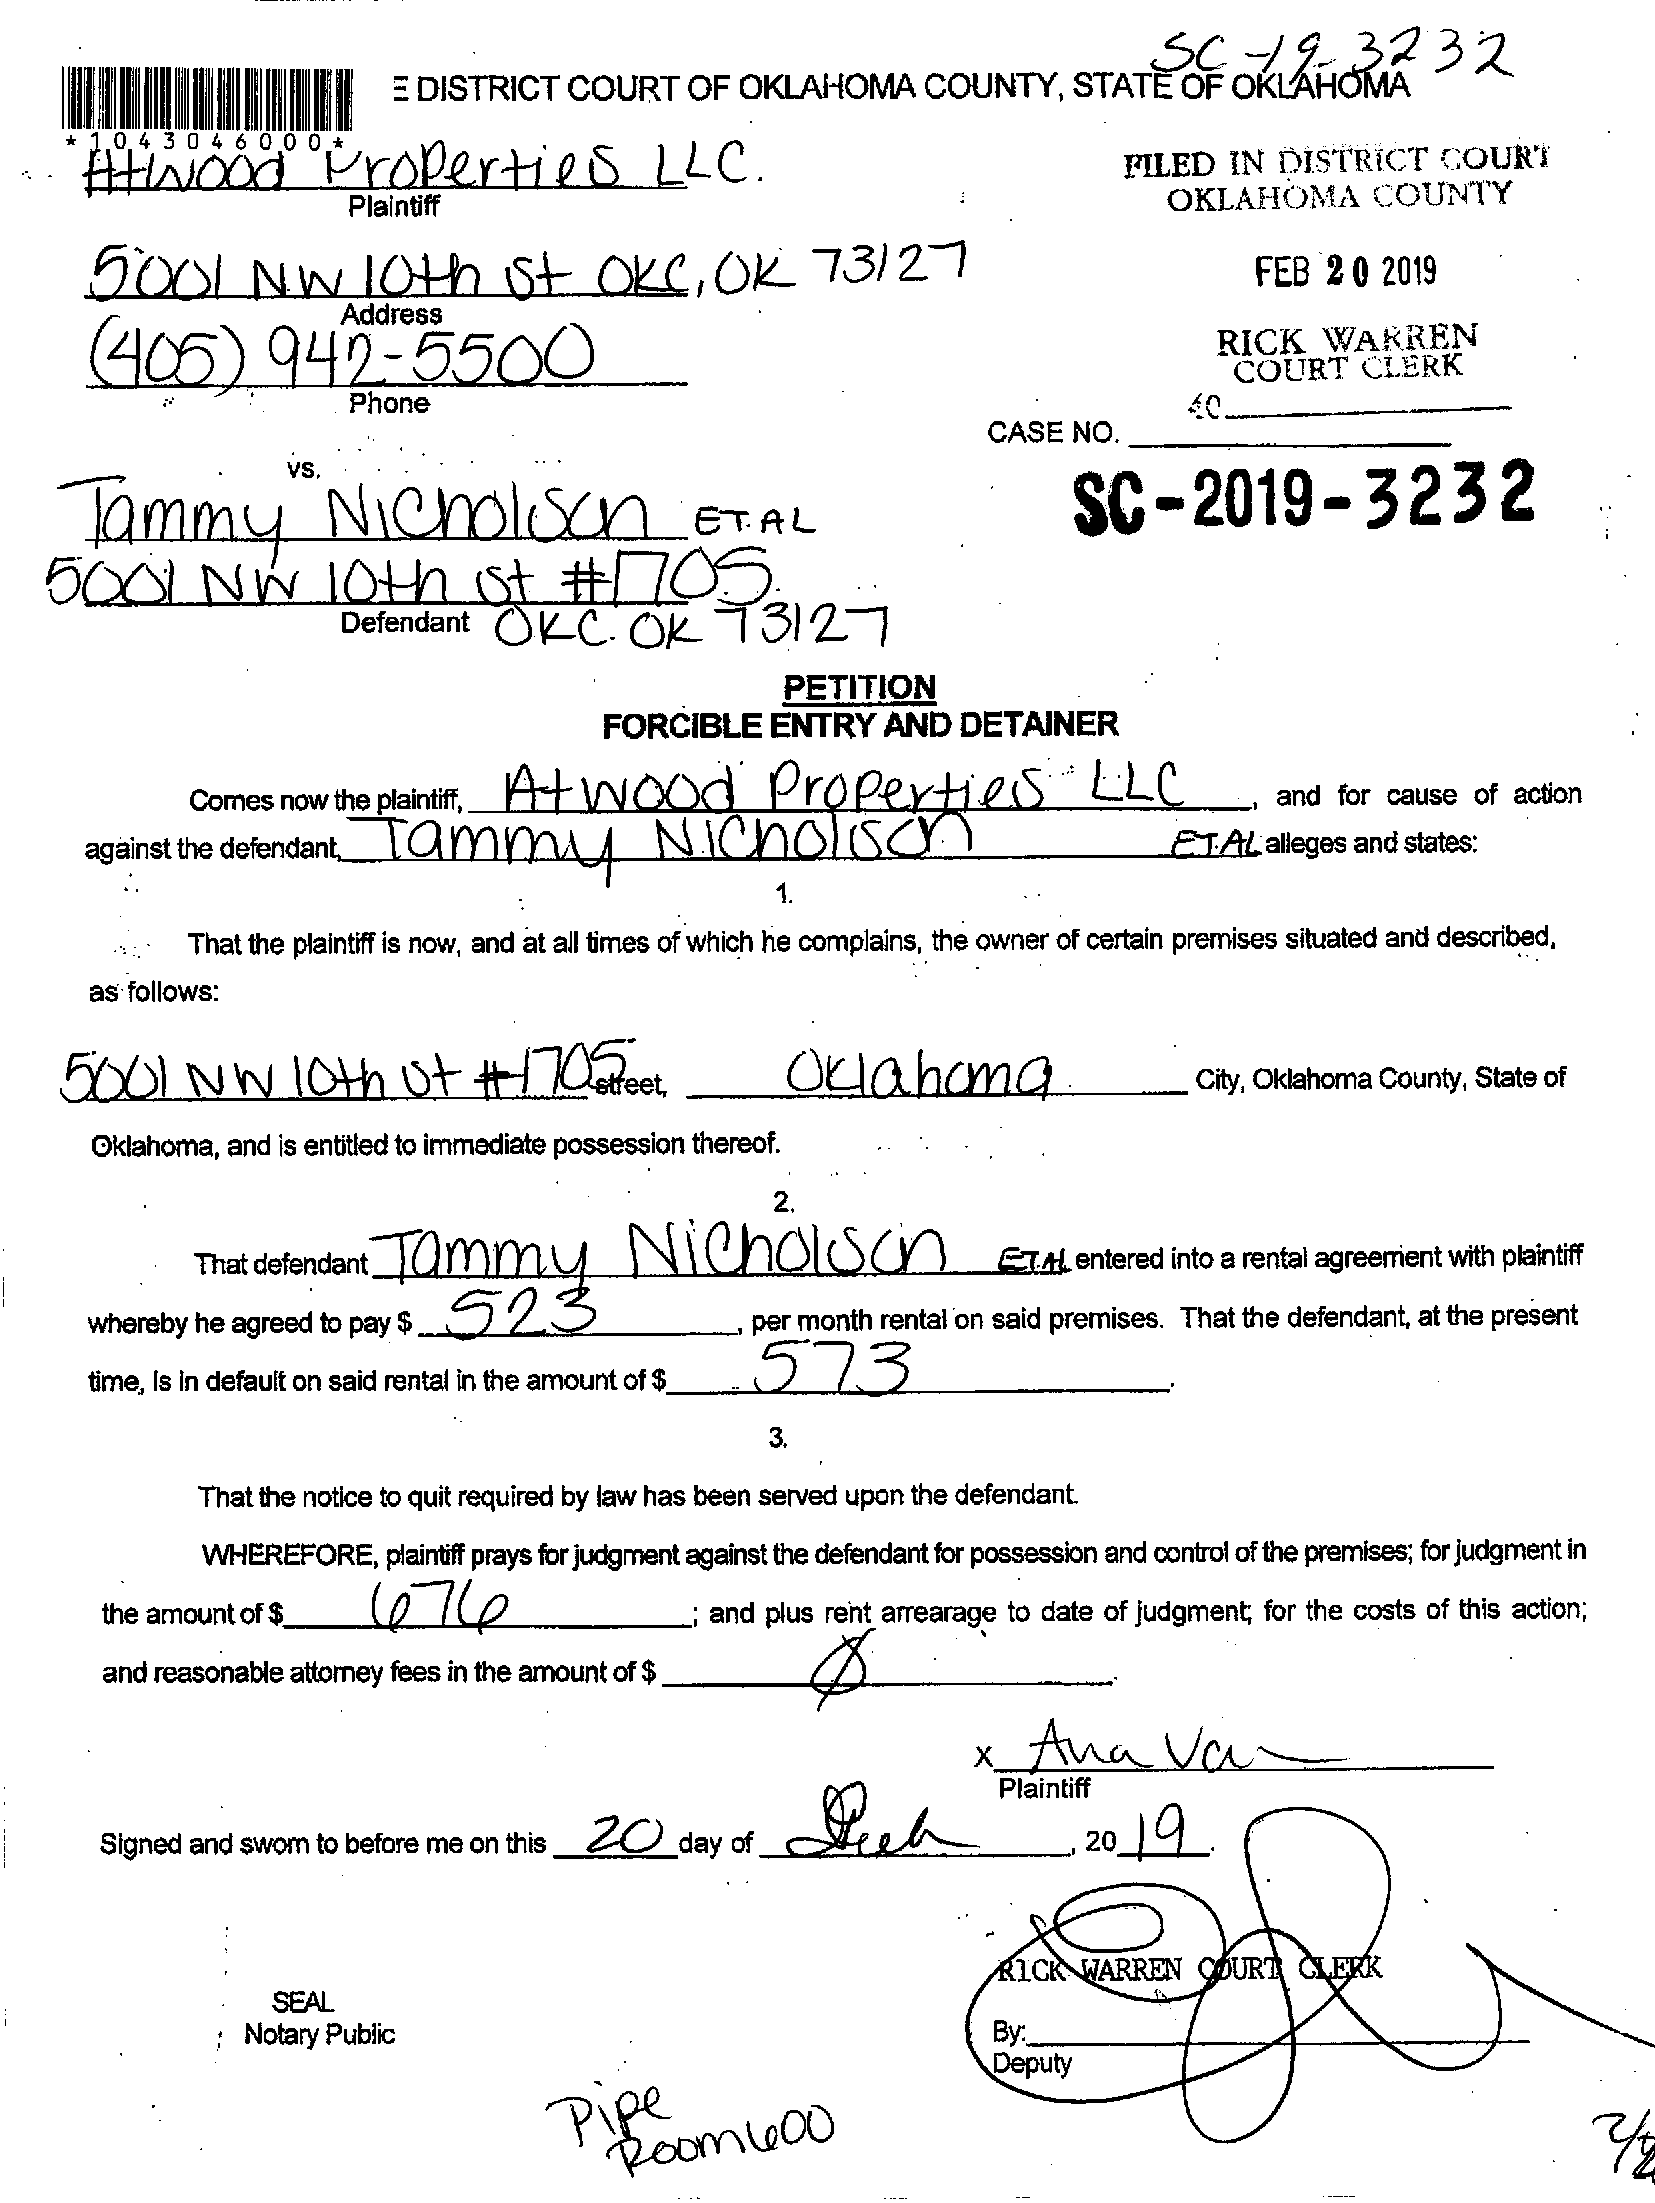 SC-19-3232
E DISTRICT COURT OF OKLAHOMA COUNTY, STATE OF OKLAHOMA
*1043046000*
Atwood Properties LLC.
Plaintiff
FILED IN DISTRICT COURT
OKLAHOMA COUNTY
5001 NW 10th St OKC, OK 73127
Address
FEB 20 2019
(405) 942-5500
Phone
RICK WARREN
COURT CLERK
40
CASE NO.
SC-2019-3232
vs.
Tammy Nicholson ET.AL
5001 NW 10th St #1705
Defendant OKC. OK 73127
PETITION
FORCIBLE ENTRY AND DETAINER
Comes now the plaintiff, Atwood Properties LLC, and for cause of action
against the defendant, Tammy Nicholson ET.AL alleges and states:
1.
That the plaintiff is now, and at all times of which he complains, the owner of certain premises situated and described,
as follows:
5001 NW 10th St #1705 street, Oklahoma City, Oklahoma County, State of
Oklahoma, and is entitled to immediate possession thereof.
2.
That defendant Tammy Nicholson ET.AL entered into a rental agreement with plaintiff
whereby he agreed to pay $ 523, per month rental on said premises. That the defendant, at the present
time, is in default on said rental in the amount of $ 573.
3.
That the notice to quit required by law has been served upon the defendant.
WHEREFORE, plaintiff prays for judgment against the defendant for possession and control of the premises; for judgment in
the amount of $ 676; and plus rent arrearage to date of judgment; for the costs of this action;
and reasonable attorney fees in the amount of $ Ø.
x Ana Va
Plaintiff
Signed and sworn to before me on this 20 day of Feb, 2019.
RICK WARREN COURT CLERK
SEAL
Notary Public
By:
Deputy
Pipe
Room 600